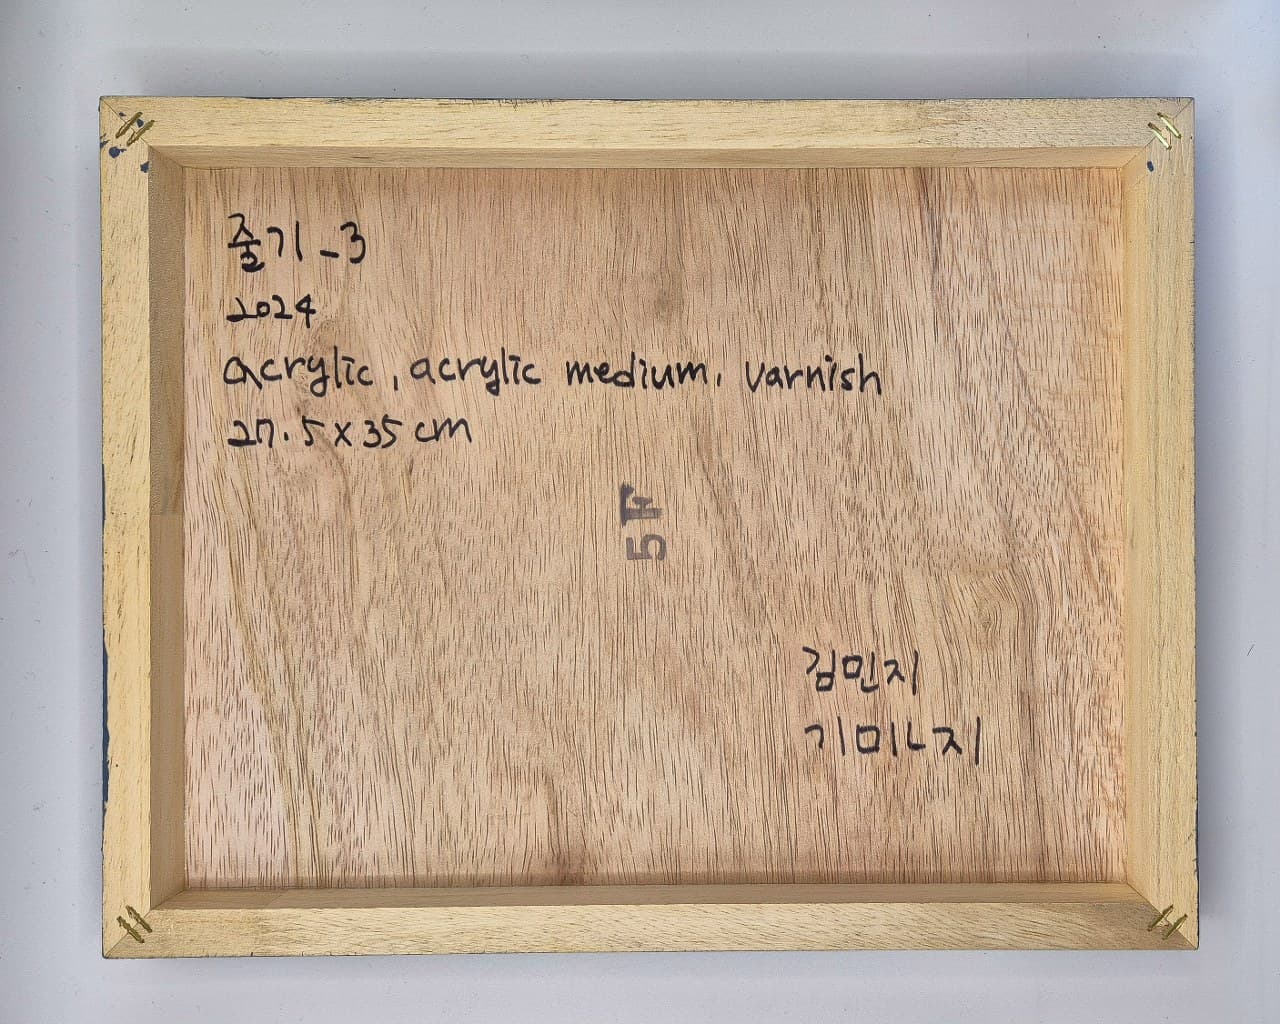 줄기_3
2024
acrylic, acrylic medium, varnish
27.5 x 35 cm
5F
김민지
기미ㄴ지